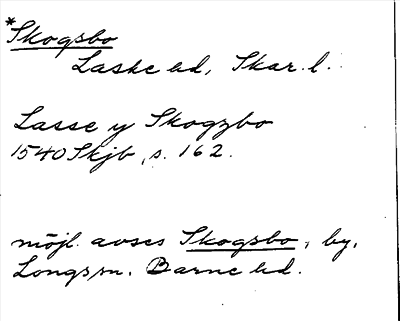 *Skogsbo
Laske hd, Skar. l.
Lasse y Skogzbo
1540 Skjb, s. 162.
möjl. avses Skogsbo, by,
Longs sn. Barne hd.